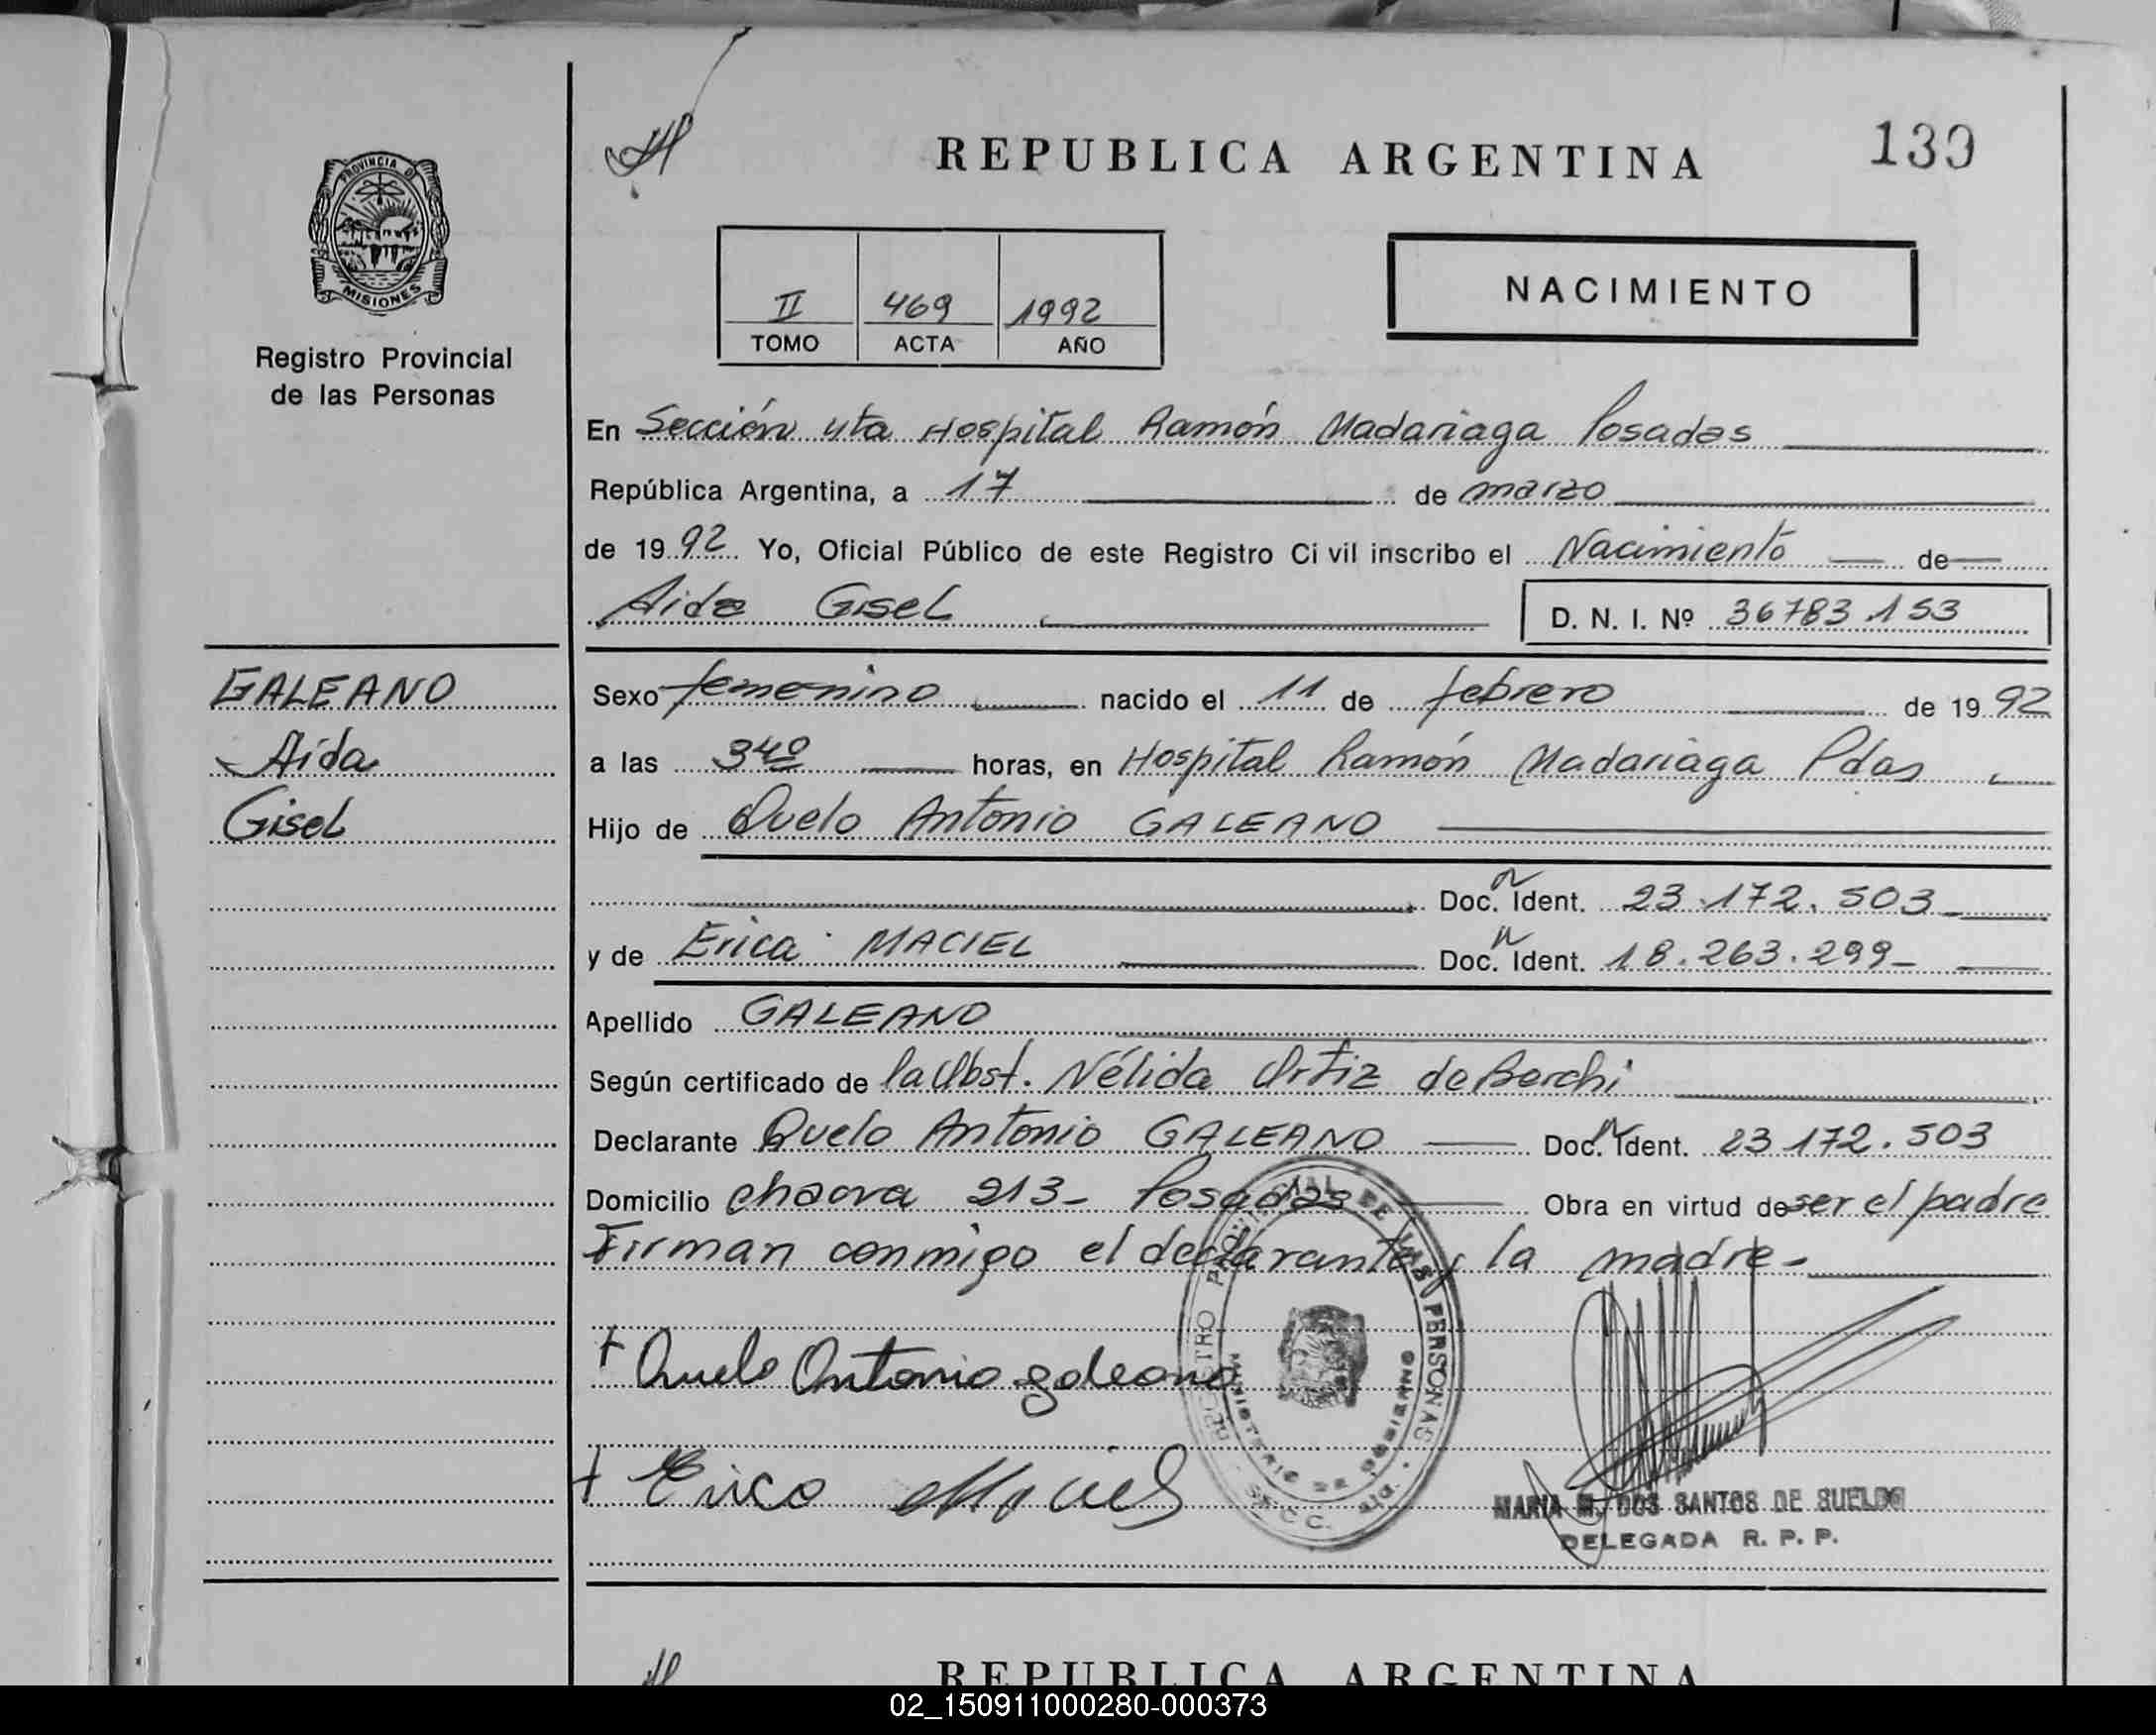 REPUBLICA ARGENTINA
139
PROVINCIA DE
MISIONES
Registro Provincial
de las Personas
II 469 1992
TOMO ACTA AÑO
NACIMIENTO
En Sección 4ta Hospital Ramón Madariaga Posadas
República Argentina, a 17 de marzo
de 1992 Yo, Oficial Público de este Registro Civil inscribo el Nacimiento de
Aida Gisel D. N. I. Nº 36783153
GALEANO
Aida
Gisel
Sexo femenino nacido el 11 de febrero de 1992
a las 340 horas, en Hospital Ramón Madariaga Pdas
Hijo de Quelo Antonio GALEANO
Doc. Ident. 23.172.503
y de Erica MACIEL Doc. Ident. 18.263.299
Apellido GALEANO
Según certificado de la Obst. Nélida Ortiz de Berchi
Declarante Quelo Antonio GALEANO Doc. Ident. 23172.503
Domicilio chacra 213 Posadas Obra en virtud de ser el padre
Firman conmigo el declarante y la madre
+ Quelo Antonio galeano
+ Erica Maciel
REGISTRO PROVINCIAL DE LAS PERSONAS
MINISTERIO DE GOBIERNO
MARIA M. DOS SANTOS DE SUELDO
DELEGADA R. P. P.
REPUBLICA ARGENTINA
02_150911000280-000373